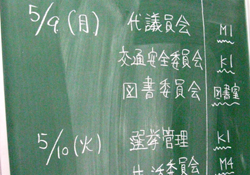 5/9(月) 代議員会 M1
交通安全委員会 K1
図書委員会 図書室
5/10(火) 選挙管理 K1
生活委員会 M4